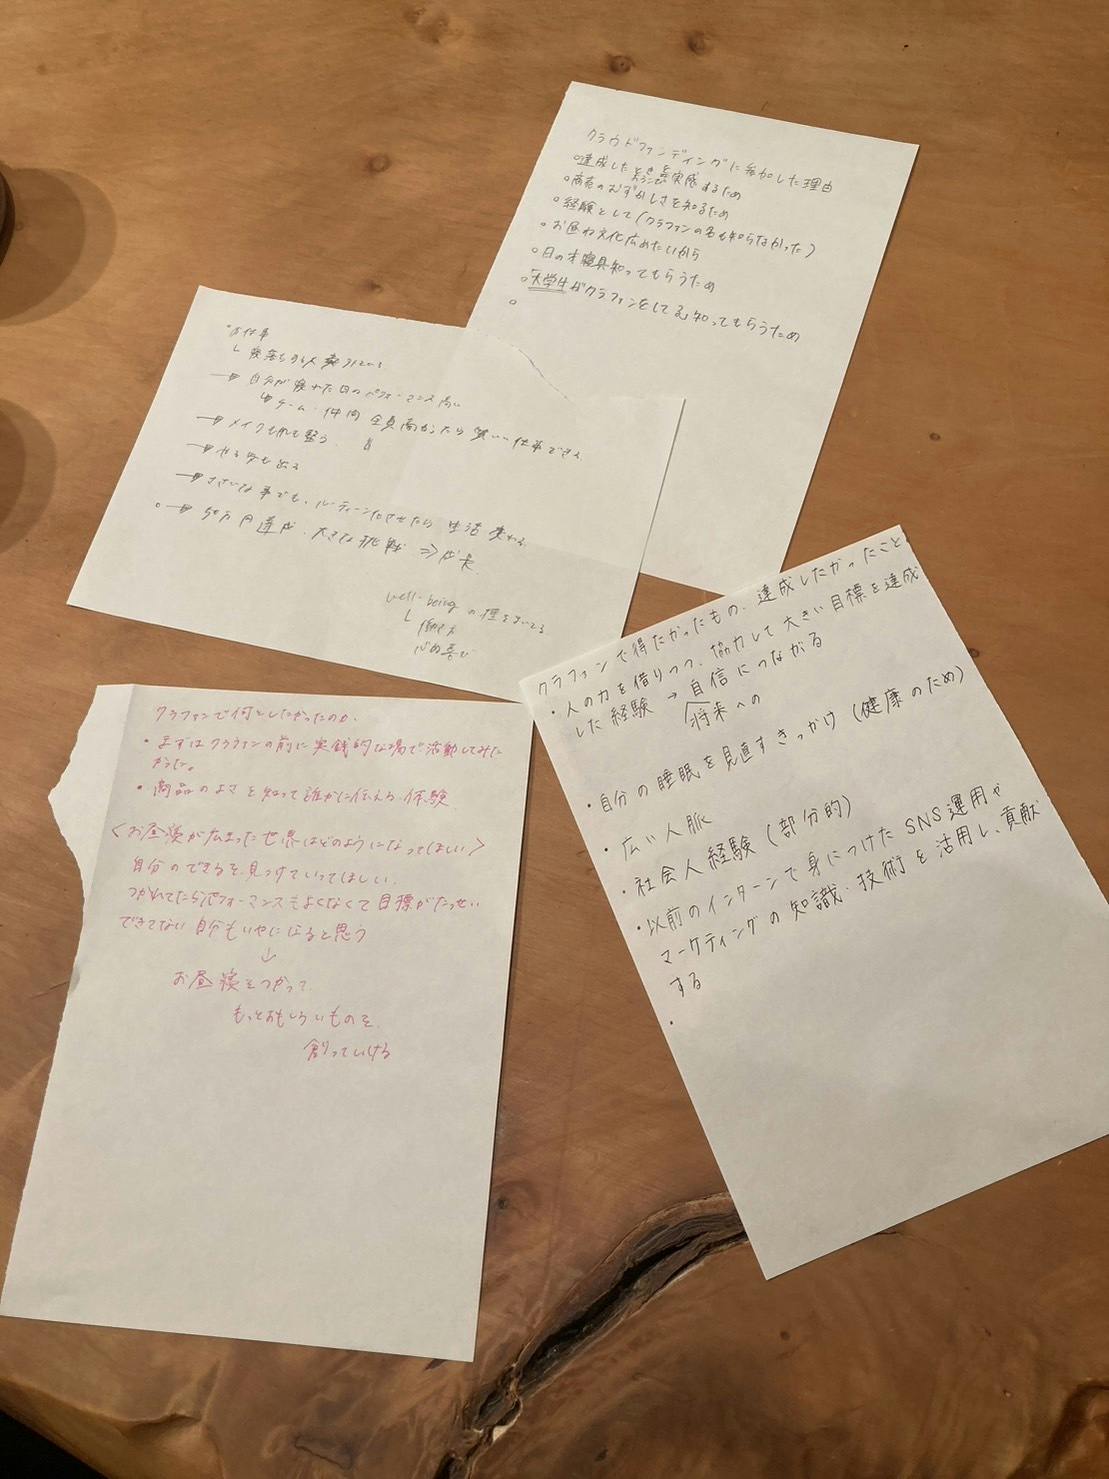 クラウドファンディングに参加した理由
○達成したときの喜びを実感するため
○商売のむずかしさを知るため
○経験として(クラファンの名も知らなかった)
○お昼ね文化広めたいから
○日の本寝具知ってもらうため
○大学生がクラファンをしてる知ってもらうため
○
○お仕事
└寝落ちする人
→自分が寝れた日のパフォーマンス高い
チーム・仲間 全員高かったら 質いい仕事できる
→メイクも肌も整う
→やる気も出る
→ささいな事でも、ルーティン化させたら 生活 変わる
○→50万円達成、大きな挑戦 ⇒成長
well-beingの種をまいてる
└働き方
クラファンで得たかったもの、達成したかったこと
・人の力を借りつつ、協力して大きい目標を達成
した経験 → 自信につながる
将来への
・自分の睡眠を見直すきっかけ(健康のため)
・広い人脈
・社会人経験(部分的)
・以前のインターンで身につけたSNS運用や
マーケティングの知識・技術を活用し、貢献
する
・
クラファンで何をしたかったのか、
・まずはクラファンの前に実銭的な場で活動してみた
かった。
・商品のよさを知って誰かに伝える体験
<お昼寝が広まった世界はどのようになってほしい>
自分のできるを見つけていってほしい、
つかれてたらパフォーマンスもよくなくて目標がたっせい
できてない自分もいやになると思う
↓
お昼寝をつかって、
もっとおもしろいものを、
創っていける